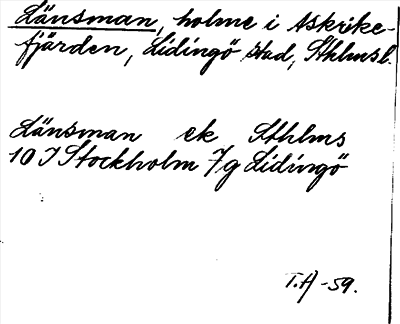 Länsman, holme i Askrike-
fjärden, Lidingö stad, Sthlmsl.
Länsman ek Sthlms
10 I Stockholm 7g Lidingö
T.A -59.